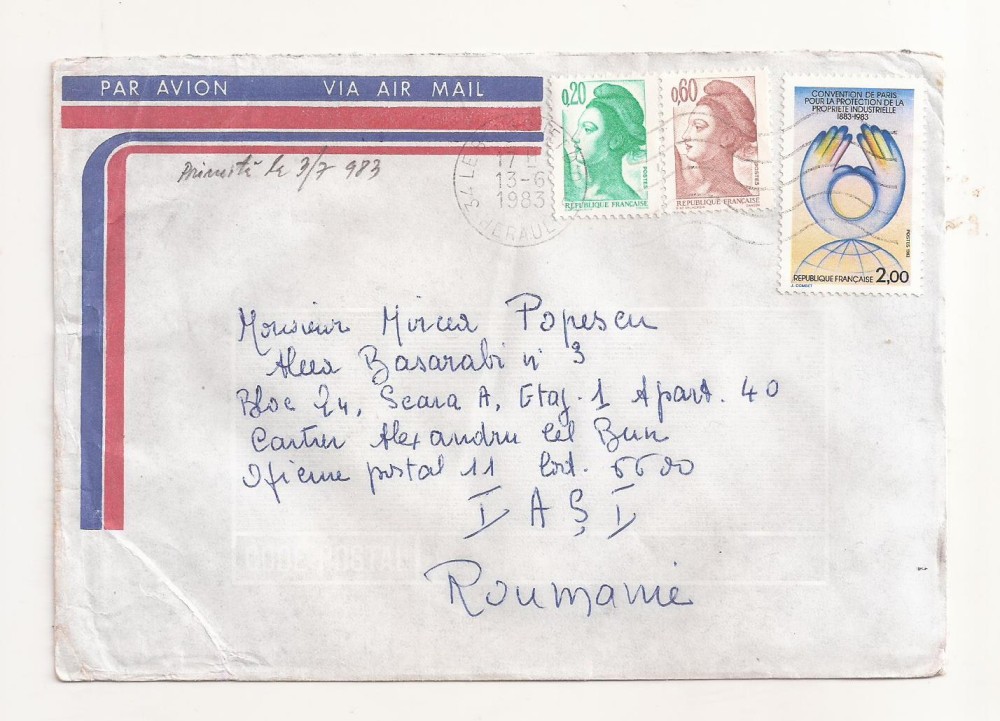 PAR AVION VIA AIR MAIL
Primită la 3/7 983
34 LE
17
13-6
1983
HERAULT
0,20
POSTES
REPUBLIQUE FRANÇAISE
0,60
POSTES
REPUBLIQUE FRANÇAISE
CONVENTION DE PARIS
POUR LA PROTECTION DE LA
PROPRIETE INDUSTRIELLE
1883-1983
POSTES 1983
REPUBLIQUE FRANÇAISE 2,00
Monsieur Mircea Popescu
Aleea Basarabi n° 3
Bloc 24, Scara A, Etaj. 1 Apart. 40
Cartier Alexandru cel Bun
Oficiue postal 11 Cod. 6600
IAȘI
Roumanie
CODE POSTAL